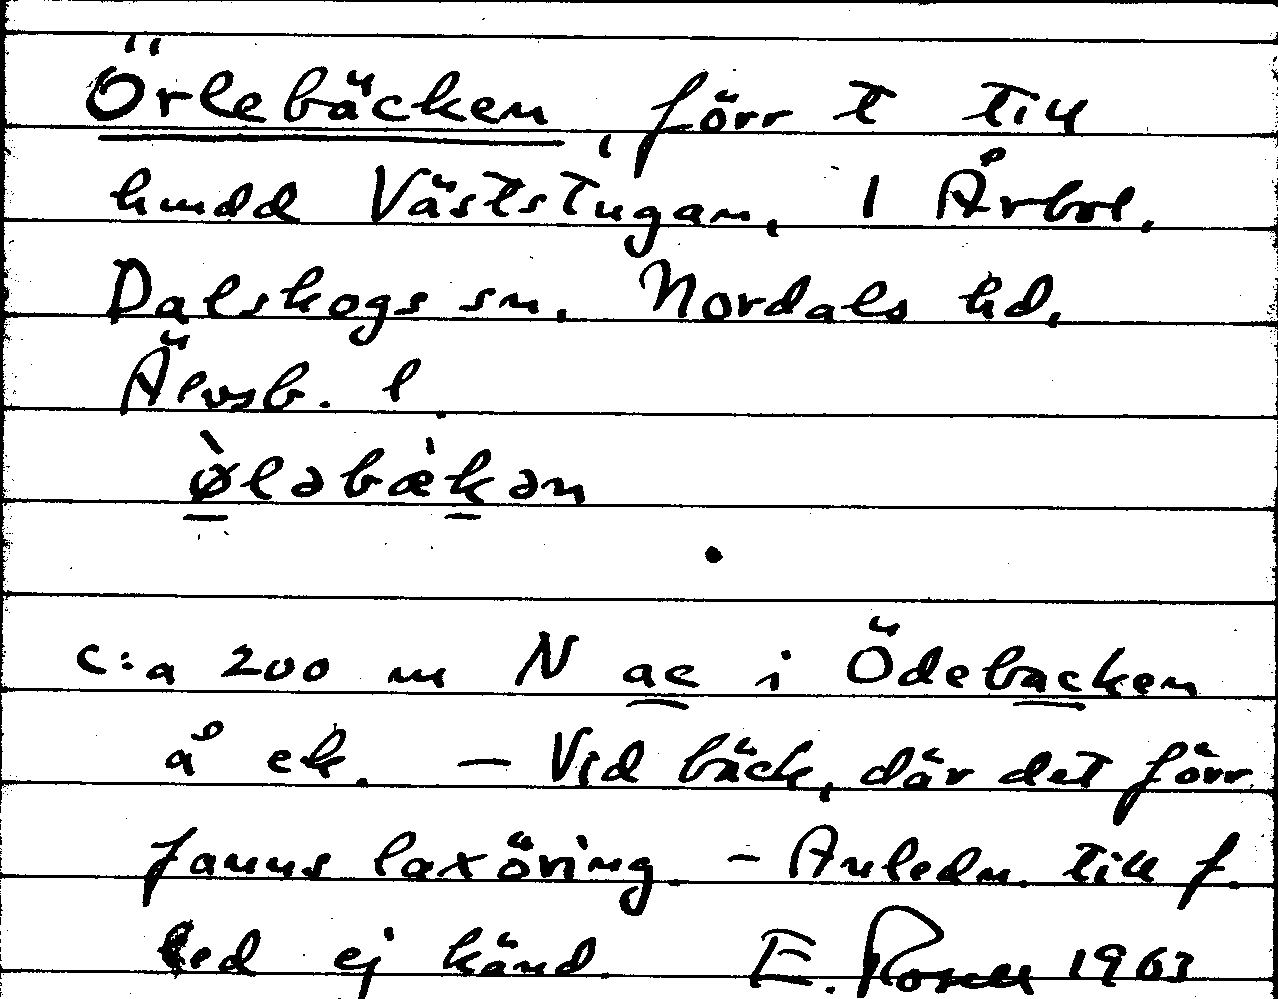 Örlebäcken, förr t till
hmdd Väststugan, 1 Årbol,
Dalskogs sn. Nordals hd,
Älvsb. l.
ø̀ləbæ̀kən
c:a 200 m N ae i Ödebacken
å ek. — Vid bäck, där det förr
fanns laxöring. - Anledn. till f.
led ej känd. E. 1963